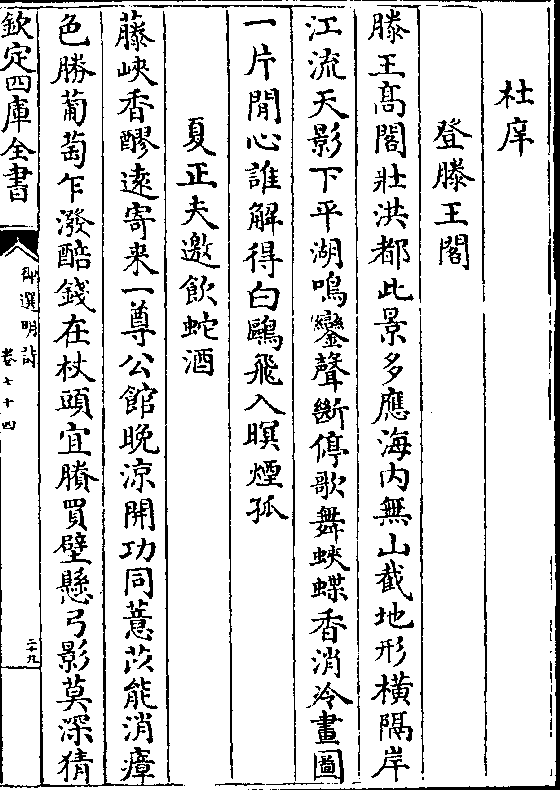 杜庠
登滕王閣
滕王髙閣壯洪都此景多應海内無山截地形橫隔岸
江流天影下平湖鳴鑾聲斷停歌舞蛺蝶香消冷畫圖
一片閒心誰解得白鷗飛入暝煙孤
夏正夫邀飲蛇酒
藤峽香醪逺寄来一尊公館晚凉開功同薏苡能消瘴
色勝葡萄乍潑醅錢在杖頭宜賸買壁懸弓影莫深猜
欽定四庫全書
御選明詩
卷七十四
二十九